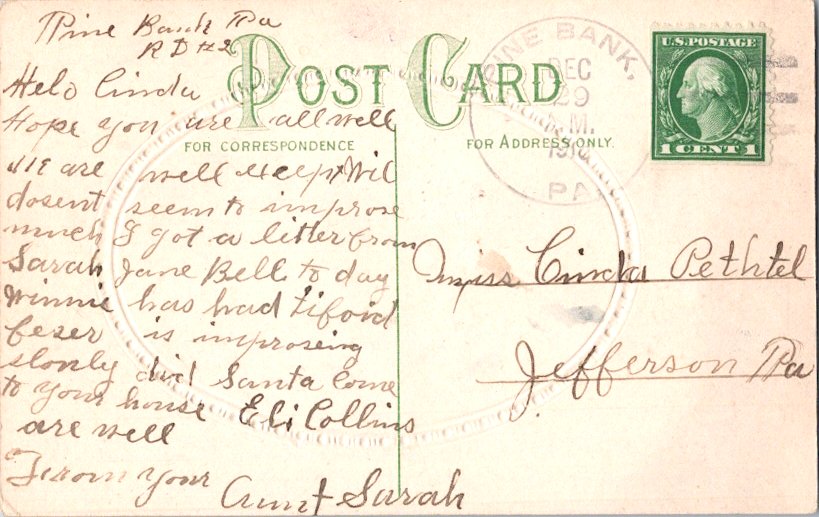 Pine Bank Pa
R D #2
POST CARD
FOR CORRESPONDENCE
FOR ADDRESS ONLY.
Helo Cinda
Hope you are all well
We are well except Wil
dosent seem to improse
much I got a litter from
Sarah Jane Bell to day
Winnie has had tifoid
fezer is improseing
slonly did Santa Come
to your house Eli Collins
are well
From your
Aunt Sarah
PINE BANK,
DEC
29
M.
PA
U.S. POSTAGE
1 CENT 1
Miss Cinda Pethtel
Jefferson Pa